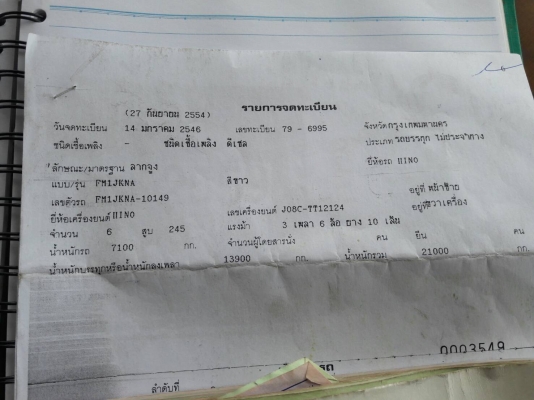 (27 กันยายน 2554) รายการจดทะเบียน
วันจดทะเบียน 14 มกราคม 2546 เลขทะเบียน 79 - 6995 จังหวัดกรุงเทพมหานคร
ชนิดเชื้อเพลิง - ชนิดเชื้อเพลิง ดีเซล ประเภท รถบรรทุก ไม่ประจำทาง
ลักษณะ/มาตรฐาน ลากจูง ยี่ห้อรถ HINO
แบบ/รุ่น FM1JKNA สีขาว
เลขตัวรถ FM1JKNA-10149 อยู่ที่ หน้าซ้าย
ยี่ห้อเครื่องยนต์ HINO เลขเครื่องยนต์ J08C-TT12124 อยู่ที่ขวาเครื่อง
จำนวน 6 สูบ 245 แรงม้า 3 เพลา 6 ล้อ ยาง 10 เส้น
น้ำหนักรถ 7100 กก. จำนวนผู้โดยสารนั่ง คน ยืน คน
น้ำหนักบรรทุกหรือน้ำหนักลงเพลา 13900 กก. น้ำหนักรวม 21000 กก.
0003548
ลำดับที่